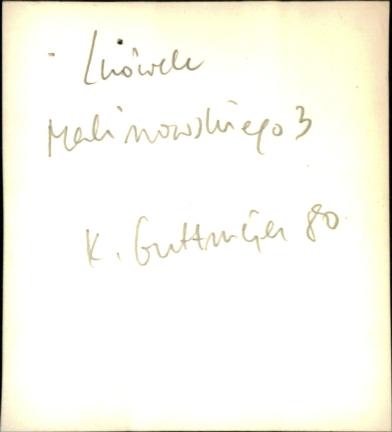 Lwówek
Malinowskiego 3
K. Guttmejer 80